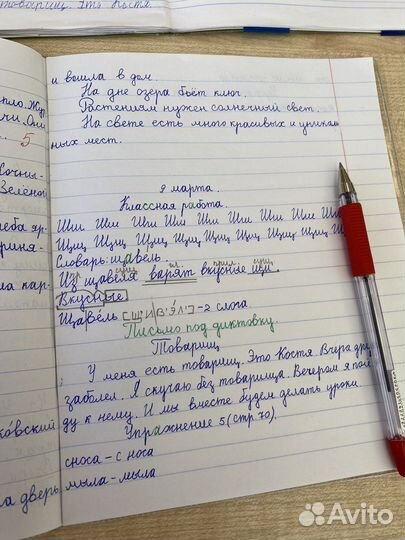 товарищ. Это Костя.
и вошла в дом.
На дне озера бьёт ключ.
Растениям нужен солнечный свет.
На свете есть много красивых и уникаль
ных мест.
9 марта.
Классная работа.
Шш Шш Шш Шш Шш Шш Шш Шш
Щщ Щщ Щщ Щщ Щщ Щщ Щщ Щщ
Словарь: щавель.
Из щавеля варят вкусные щи.
Вкусные
Щаве́ль [щ,ив,э́л,]-2 слога
Письмо под диктовку.
Товарищ
У меня есть товарищ. Это Костя. Вчера друг
заболел. Я скучаю без товарища. Вечером я пой
ду к нему. И мы вместе будем делать уроки.
Упражнение 5 (стр. 70).
сноса - с носа
мыла - мыла
5
ко́вский
дверь
Avito